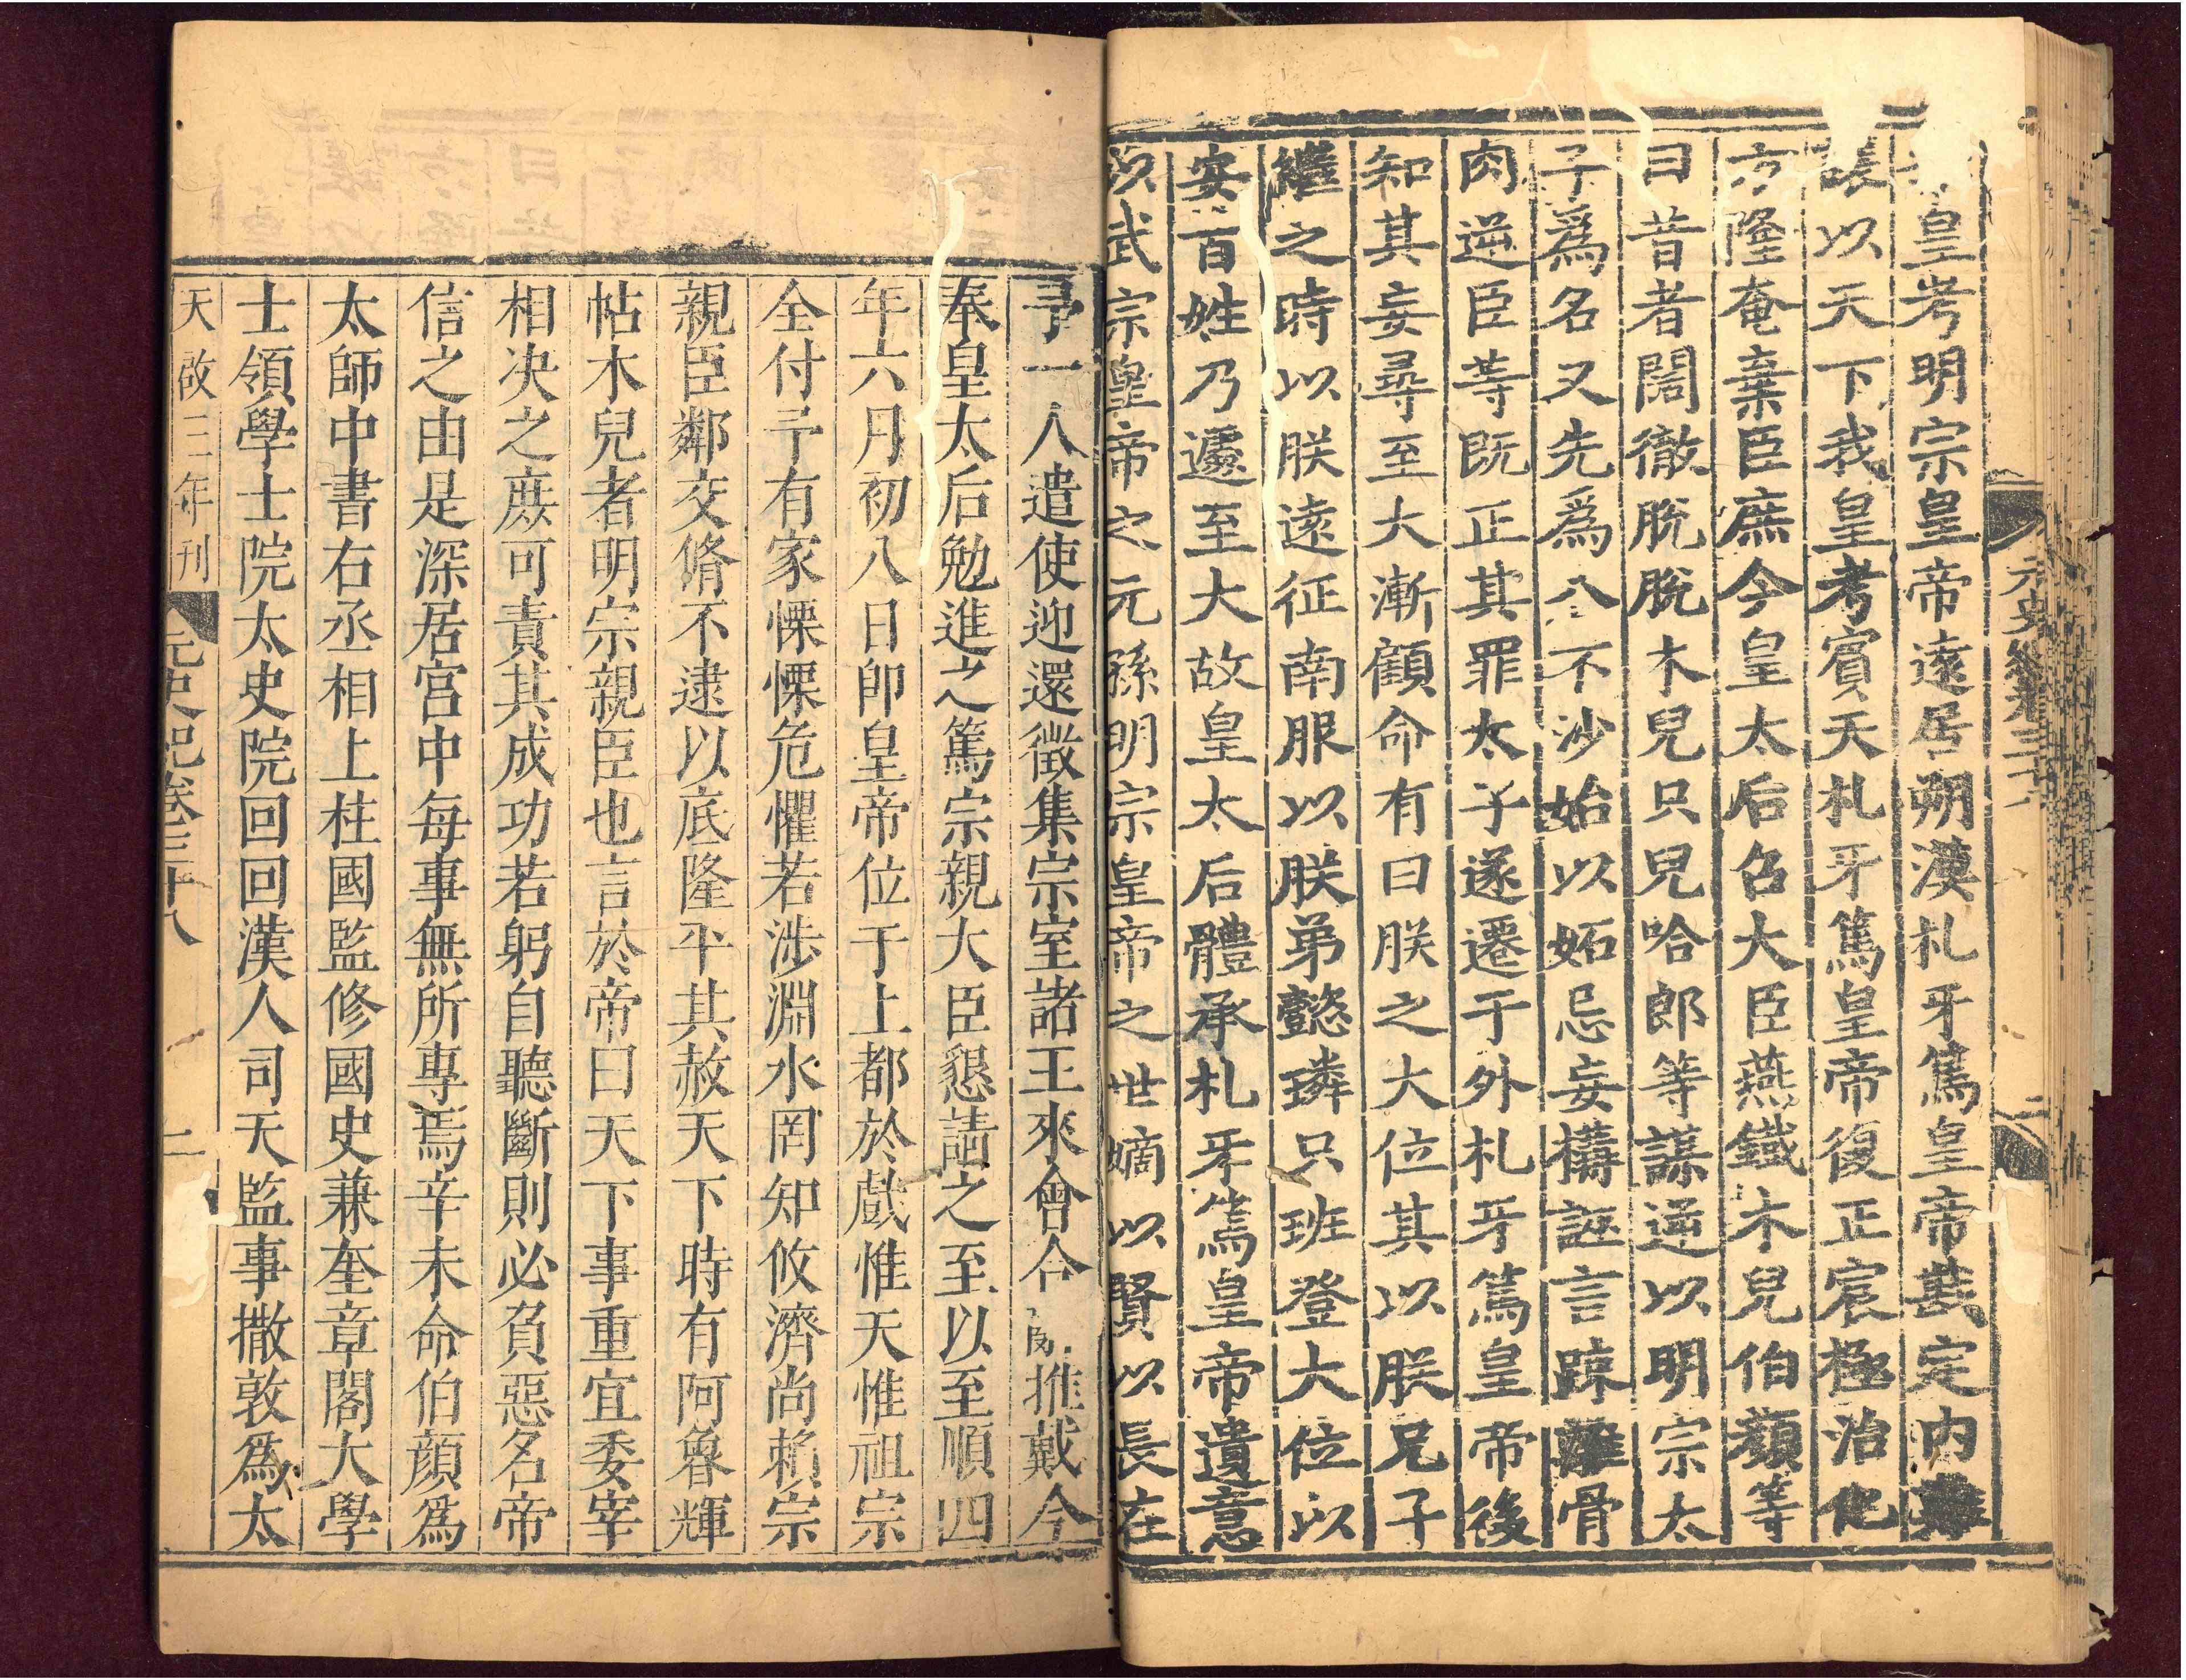 皇考明宗皇帝遠居朔漠札牙篤皇帝戡定内難
讓以天下我皇考賓天札牙篤皇帝復正宸極治化
方隆奄棄臣庶今皇太后召大臣燕鐵木兒伯顔等
曰昔者闊徹脫脫木兒只兒哈郎等謀逆以明宗太
子爲名又先爲八不沙始以妬忌妄構誣言踈離骨
肉逆臣等既正其罪太子遂遷于外札牙篤皇帝後
知其妄尋至大漸顧命有曰朕之大位其以朕兄子
繼之時以朕遠征南服以朕弟懿璘只班登大位以
安百姓乃遽至大故皇太后體承札牙篤皇帝遺意
以武宗皇帝之元孫明宗皇帝之世嫡以賢以長在
元史紀卷三十八
二
予一人遣使迎還徵集宗室諸王來會合推戴今
奉皇太后勉進之篤宗親大臣懇請之至以至順四
年六月初八日卽皇帝位于上都於戲惟天惟祖宗
全付予有家慄慄危懼若涉淵水罔知攸濟尚賴宗
親臣鄰交脩不逮以底隆平其赦天下時有阿魯輝
帖木兒者明宗親臣也言於帝曰天下事重宜委宰
相决之庶可責其成功若躬自聽斷則必負惡名帝
信之由是深居宮中每事無所專焉辛未命伯顔爲
太師中書右丞相上柱國監修國史兼奎章閣大學
士領學士院太史院回回漢人司天監事撒敦爲太
天啟三年刊
元史紀卷三十八
二